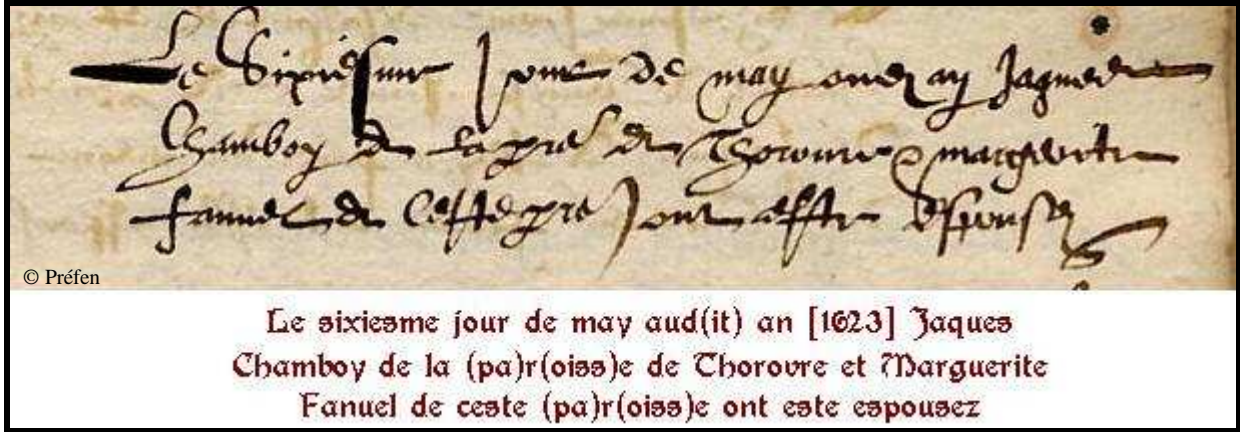 Le Sixiesme jour de may aud ay Jaques
Chamboy de la pre de Thorouvre & marguerite
fanuel de Ceste pre ont este espousez
© Préfen
Le sixiesme jour de may aud(it) an [1623] Jaques
Chamboy de la (pa)r(oiss)e de Thorovre et Marguerite
Fanuel de ceste (pa)r(oiss)e ont este espousez